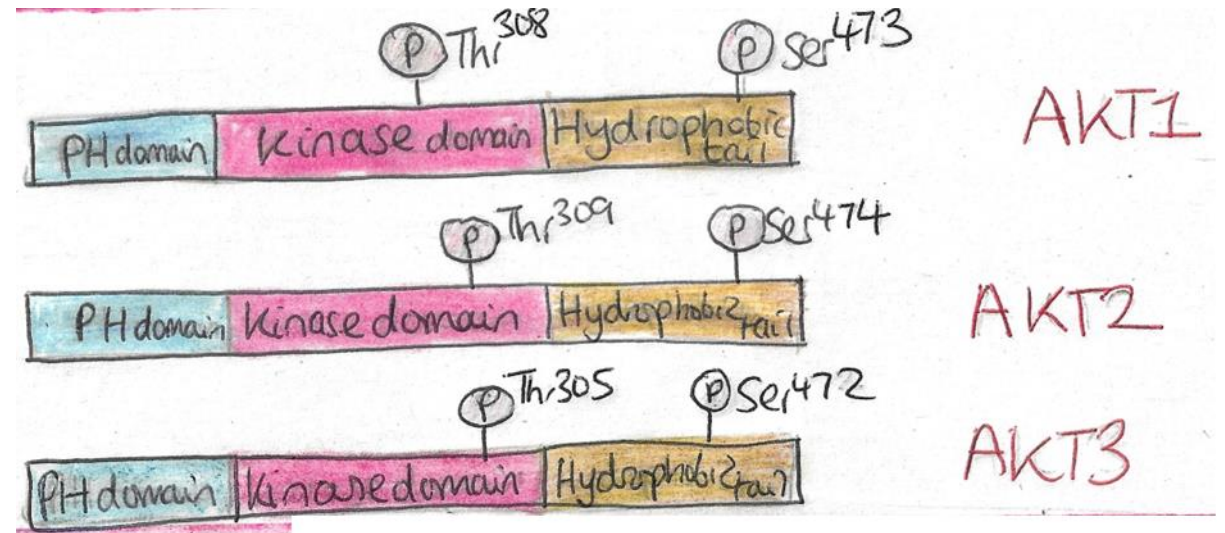 P Thr308 P Ser473
PH domain Kinase domain Hydrophobic tail AKT1
P Thr309 P Ser474
PH domain Kinase domain Hydrophobic tail AKT2
P Thr305 P Ser472
PH domain Kinase domain Hydrophobic tail AKT3